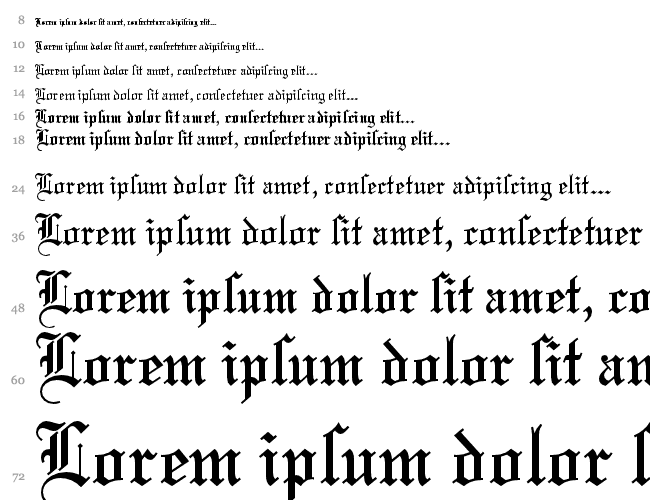 8 Lorem ipſum dolor ſit amet, conſectetuer adipiſcing elit...
10 Lorem ipſum dolor ſit amet, conſectetuer adipiſcing elit...
12 Lorem ipſum dolor ſit amet, conſectetuer adipiſcing elit...
14 Lorem ipſum dolor ſit amet, conſectetuer adipiſcing elit...
16 Lorem ipſum dolor ſit amet, conſectetuer adipiſcing elit...
18 Lorem ipſum dolor ſit amet, conſectetuer adipiſcing elit...
24 Lorem ipſum dolor ſit amet, conſectetuer adipiſcing elit...
36 Lorem ipſum dolor ſit amet, conſectetuer
48 Lorem ipſum dolor ſit amet, co
60 Lorem ipſum dolor ſit am
72 Lorem ipſum dolor ſ